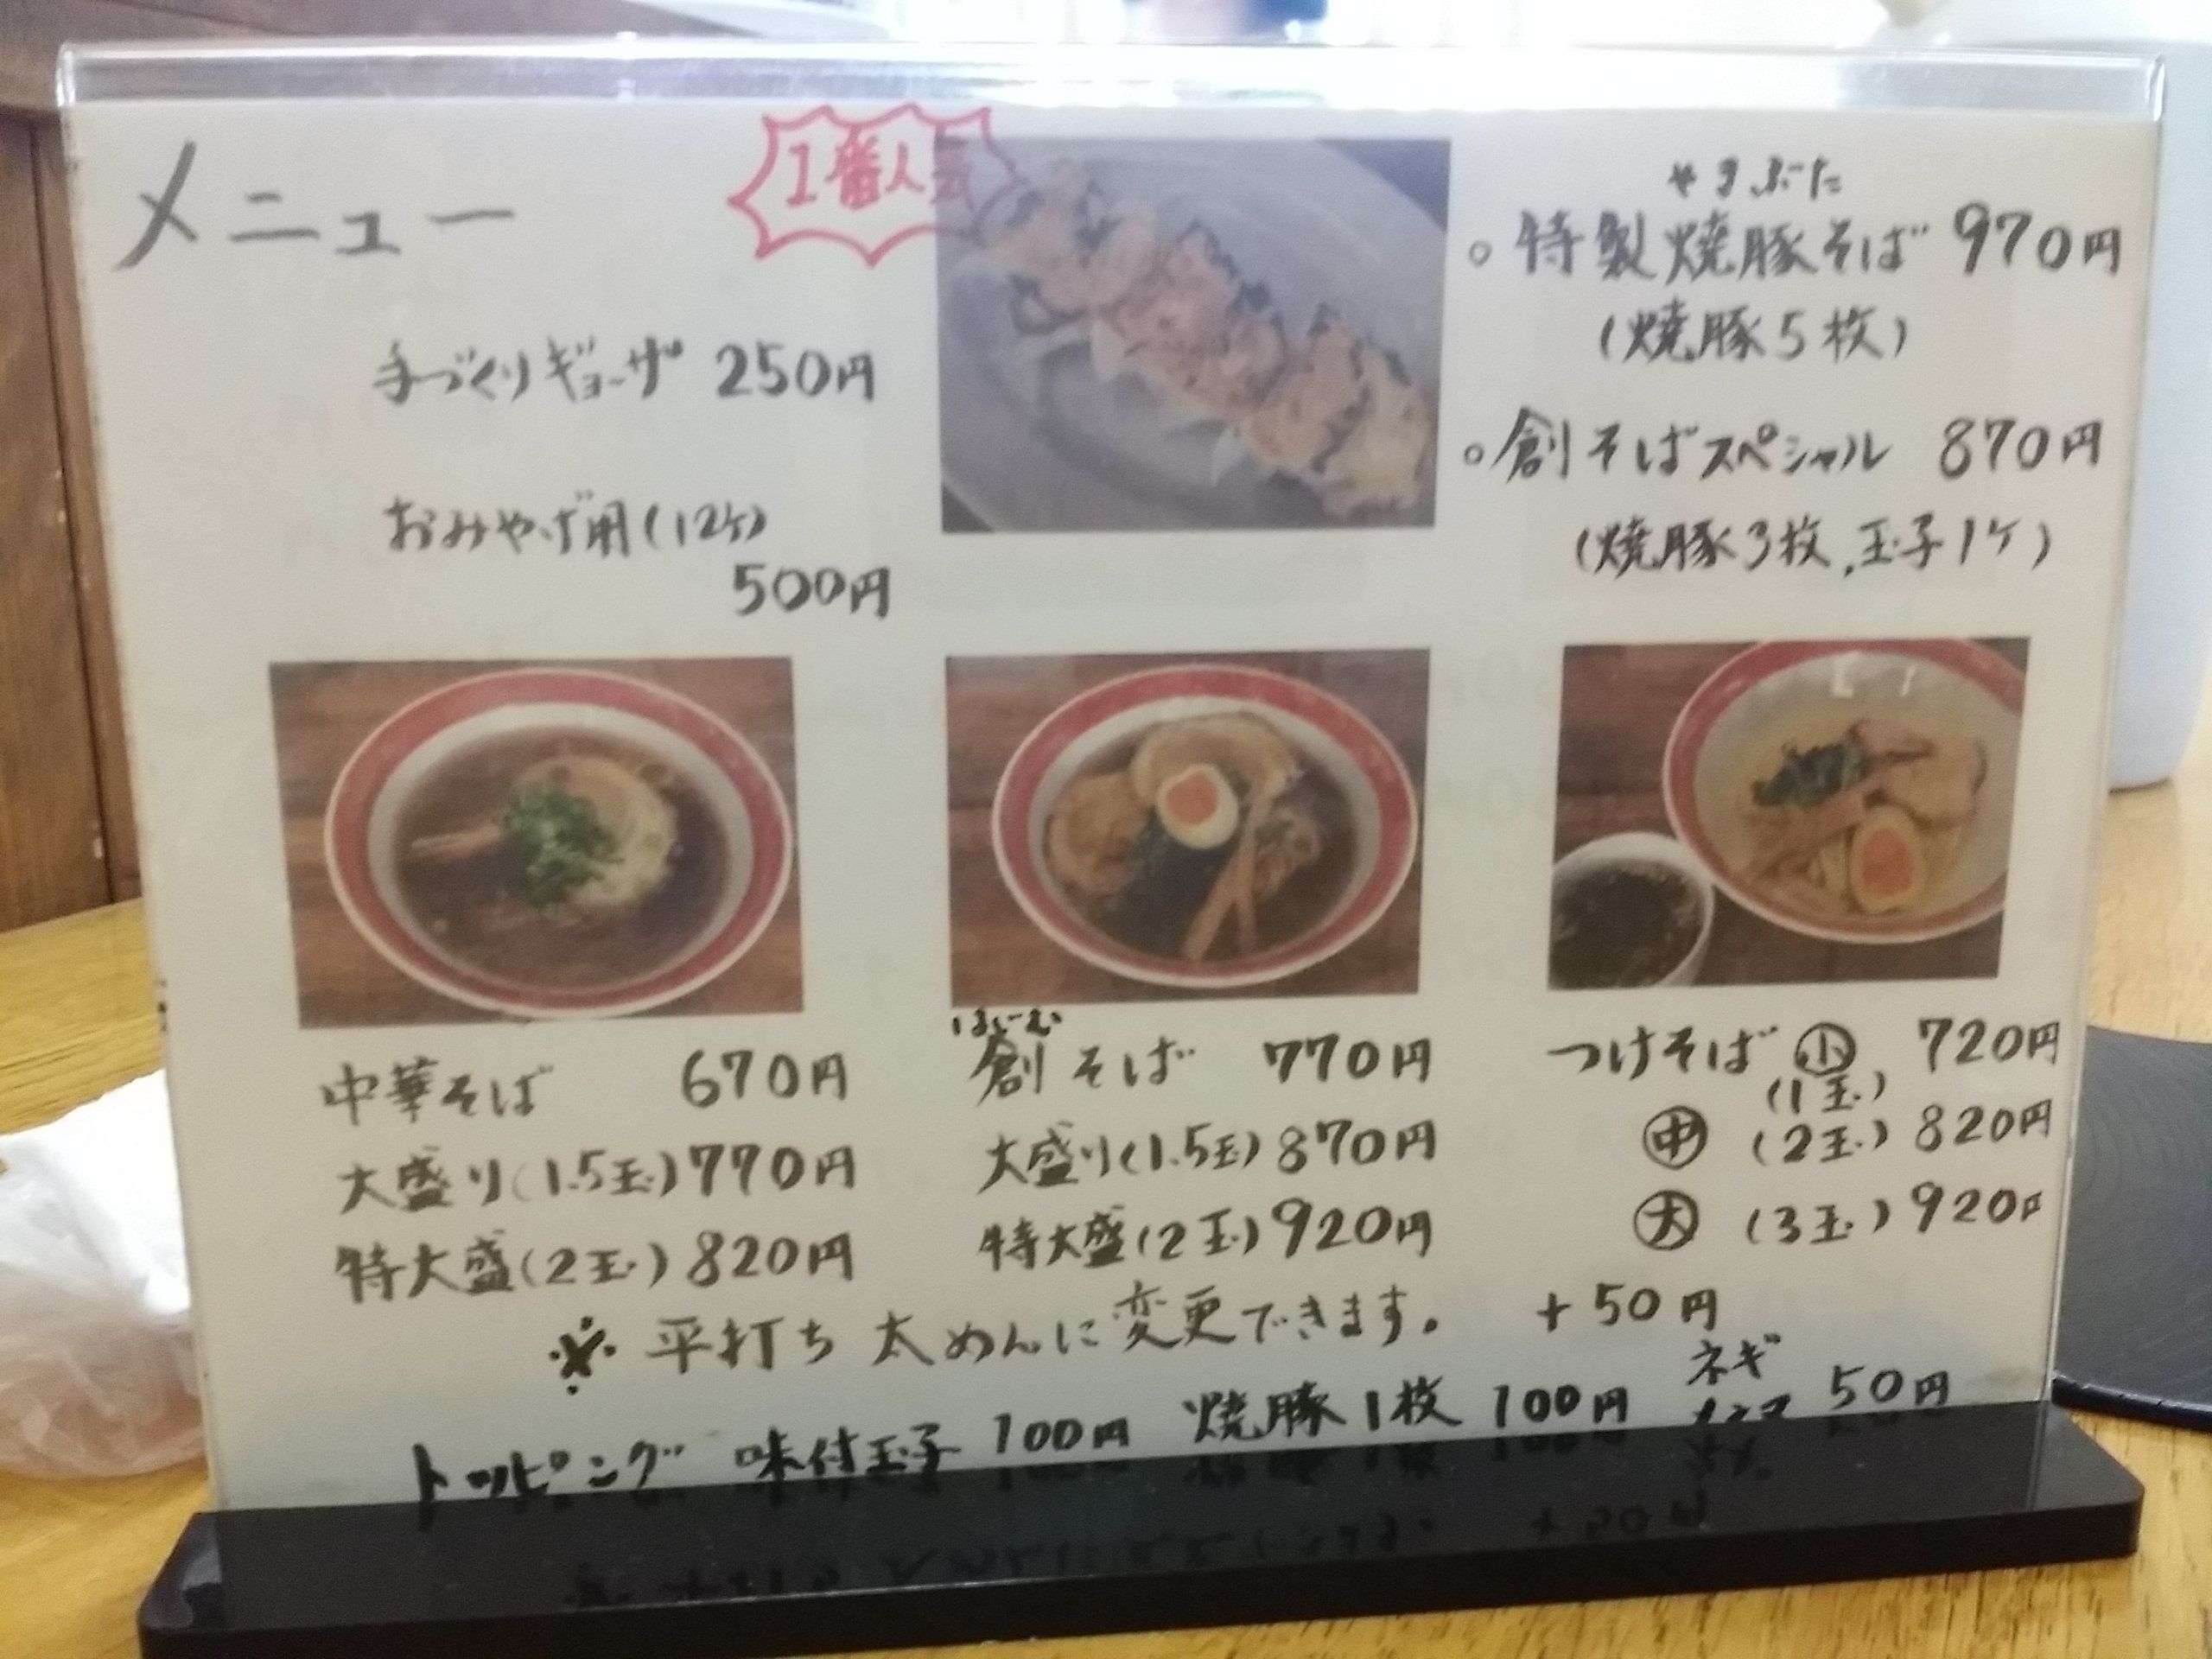 メニュー
1番人気
手づくりギョーザ 250円
おみやげ用(12ケ)
500円
やきぶた
○特製焼豚そば 970円
(焼豚5枚)
○創そばスペシャル 870円
(焼豚3枚、玉子1ケ)
中華そば 670円
大盛り(1.5玉)770円
特大盛(2玉)820円
はじむ
創そば 770円
大盛り(1.5玉)870円
特大盛(2玉)920円
つけそば 小 720円
(1玉)
中 (2玉)820円
大 (3玉)920円
※平打ち太めんに変更できます。 +50円
トッピング 味付玉子 100円 焼豚1枚 100円 ネギ 50円